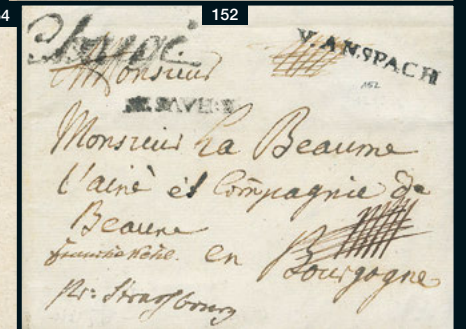 4 152
Chargé
V. ANSPACH
Monsieur
152
Monsieur La Beaume
l'ainé et Compagnie de
Beaune
en Bourgogne
pr. Strasbourg